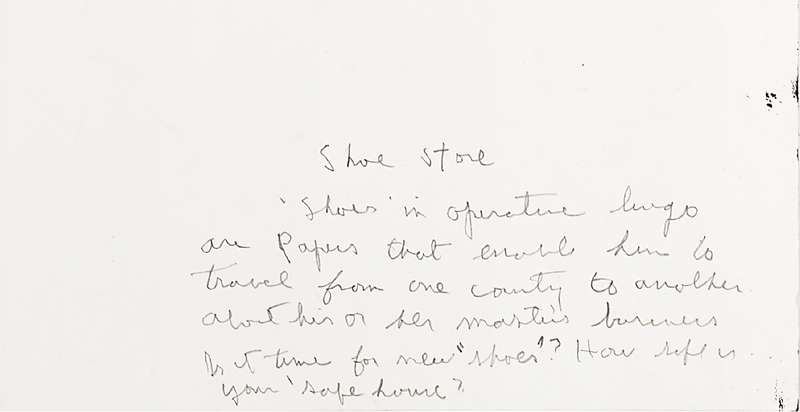 Shoe Store
'Shoes' in operative lingo
are Papers that enable him to
travel from one county to another
about his or her master's business
Is it time for new "shoes"? How safe is
your 'safe house'?